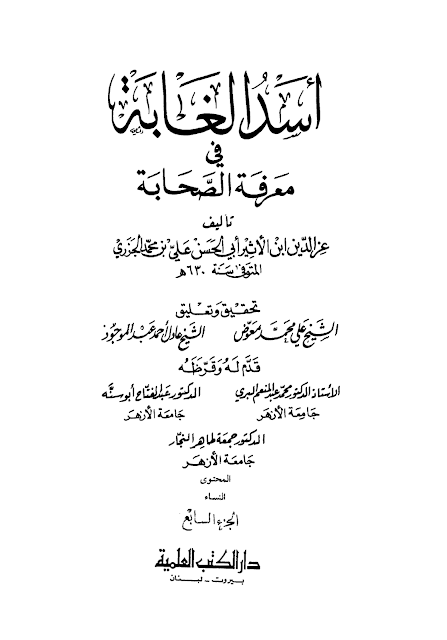 أسد الغابة
في
معرفة الصحابة
تأليف
عز الدين ابن الأثير أبي الحسن علي بن محمد الجزري
المتوفى سنة ٦٣٠ هـ
تحقيق وتعليق
الشيخ علي محمد معوض الشيخ عادل أحمد عبد الموجود
قدم له وقرظه
الأستاذ الدكتور محمد عبد المنعم البري الدكتور عبد الفتاح أبو سنه
جامعة الأزهر جامعة الأزهر
الدكتور جمعة طاهر النجار
جامعة الأزهر
المحتوى
النساء
الجزء السابع
دار الكتب العلمية
بيروت - لبنان